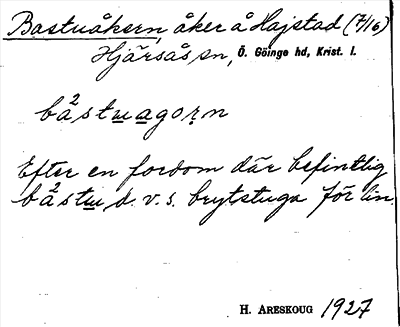 Bastuåkern, åker å Hajstad (7/16)
Hjärsås sn, Ö. Göinge hd, Krist. l.
bå²stu̲a̲gor̥n
Efter en fordom där befintlig
bå²stu̲, d. v. s. brytstuga för lin.
H. ARESKOUG 1927